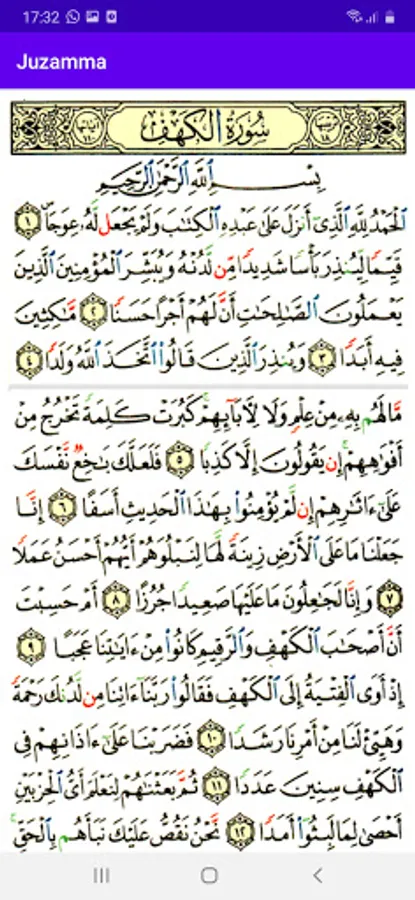 17:32
Juzamma
سُورَةُ الكَهْفِ
بِسْمِ اللَّهِ الرَّحْمَٰنِ الرَّحِيمِ
الْحَمْدُ لِلَّهِ الَّذِىٓ أَنزَلَ عَلَىٰ عَبْدِهِ الْكِتَٰبَ وَلَمْ يَجْعَل لَّهُۥ عِوَجَا ١
قَيِّمًا لِّيُنذِرَ بَأْسًا شَدِيدًا مِّن لَّدُنْهُ وَيُبَشِّرَ الْمُؤْمِنِينَ الَّذِينَ
يَعْمَلُونَ الصَّٰلِحَٰتِ أَنَّ لَهُمْ أَجْرًا حَسَنًا ٢ مَّٰكِثِينَ
فِيهِ أَبَدًا ٣ وَيُنذِرَ الَّذِينَ قَالُوا اتَّخَذَ اللَّهُ وَلَدًا ٤
مَّا لَهُم بِهِۦ مِنْ عِلْمٍ وَلَا لِأٓبَآئِهِمْ كَبُرَتْ كَلِمَةً تَخْرُجُ مِنْ
أَفْوَٰهِهِمْ إِن يَقُولُونَ إِلَّا كَذِبًا ٥ فَلَعَلَّكَ بَٰخِعٌ نَّفْسَكَ
عَلَىٰٓ ءَاثَٰرِهِمْ إِن لَّمْ يُؤْمِنُوا بِهَٰذَا الْحَدِيثِ أَسَفًا ٦ إِنَّا
جَعَلْنَا مَا عَلَى الْأَرْضِ زِينَةً لَّهَا لِنَبْلُوَهُمْ أَيُّهُمْ أَحْسَنُ عَمَلًا
٧ وَإِنَّا لَجَٰعِلُونَ مَا عَلَيْهَا صَعِيدًا جُرُزًا ٨ أَمْ حَسِبْتَ
أَنَّ أَصْحَٰبَ الْكَهْفِ وَالرَّقِيمِ كَانُوا مِنْ ءَايَٰتِنَا عَجَبًا ٩
إِذْ أَوَى الْفِتْيَةُ إِلَى الْكَهْفِ فَقَالُوا رَبَّنَآ ءَاتِنَا مِن لَّدُنكَ رَحْمَةً
وَهَيِّئْ لَنَا مِنْ أَمْرِنَا رَشَدًا ١٠ فَضَرَبْنَا عَلَىٰٓ ءَاذَانِهِمْ فِى
الْكَهْفِ سِنِينَ عَدَدًا ١١ ثُمَّ بَعَثْنَٰهُمْ لِنَعْلَمَ أَىُّ الْحِزْبَيْنِ
أَحْصَىٰ لِمَا لَبِثُوٓا أَمَدًا ١٢ نَّحْنُ نَقُصُّ عَلَيْكَ نَبَأَهُم بِالْحَقِّ